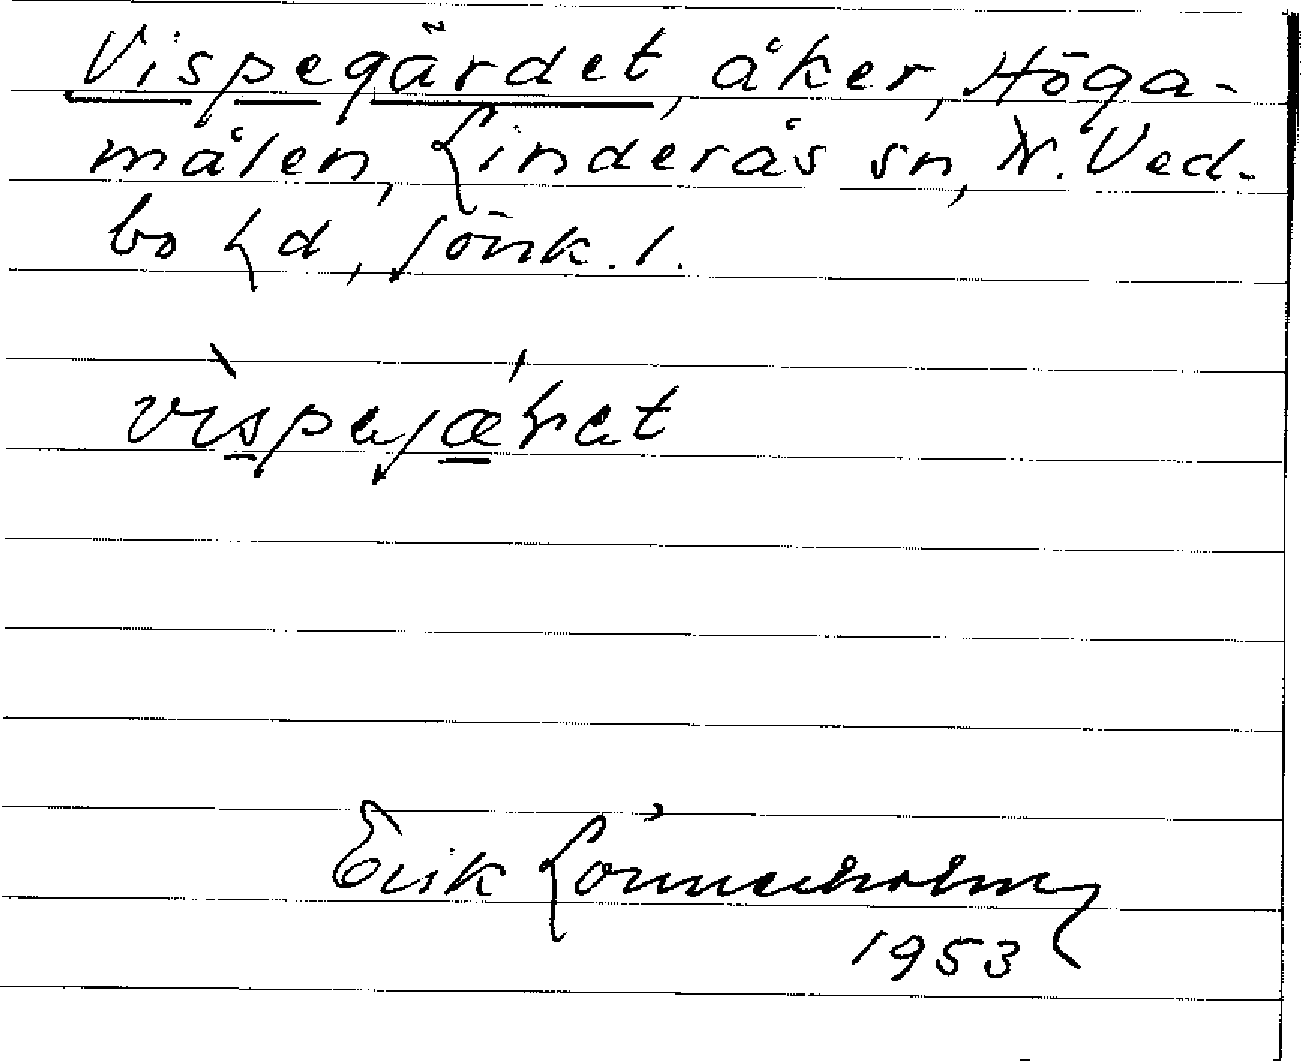 Vispegärdet, åker, Höga-
målen, Linderås sn, N. Ved-
bo hd, Jönk. l.
Erik Lönnerholm
1953